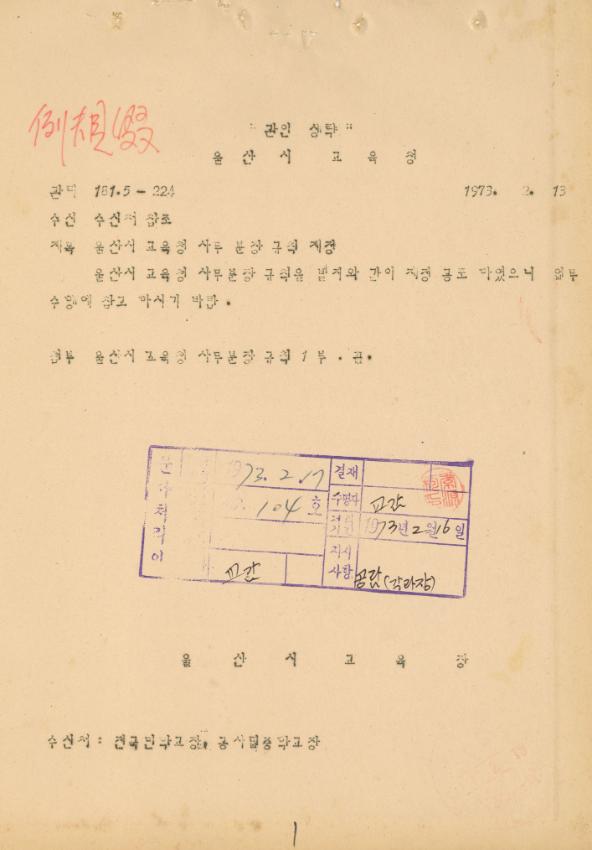 例規綴
"관인 생략"
울 산 시 교 육 청
관덕 181.5-224 1973. 2. 13
수신 수신처 참조
제목 울산시 교육청 사무 분장 규칙 제정
울산시 교육청 사무분장 규칙을 별지와 같이 제정 공포 하였으니 업무
수행에 참고 하시기 바람.
첨부 울산시 교육청 사무분장 규칙 1부. 끝.
1973. 2. 17
104 호
교감
결재
수명자 교감
1973년 2월 16일
지시
사항 공람(각과장)
울 산 시 교 육 장
수신처: 전국민학교장, 공사립중학교장
1